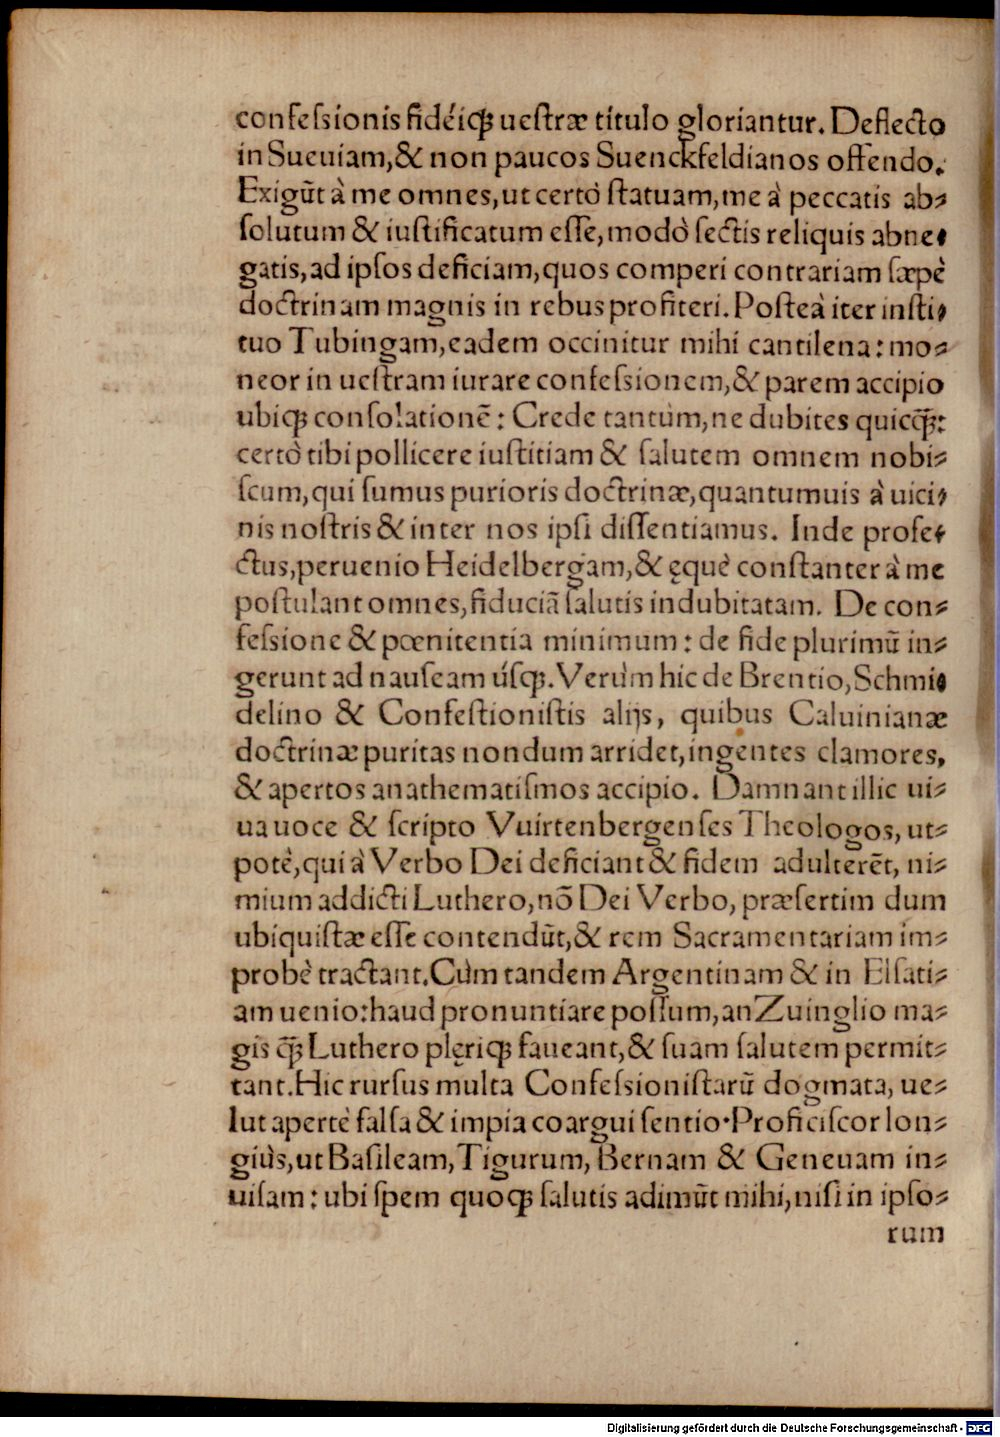 confeſsionis fidéiq́ꝫ ueſtræ titulo gloriantur. Deflecto
in Sueuiam,& non paucos Suenckfeldianos offendo.
Exigūt à me omnes,ut certò ſtatuam,me à peccatis ab⸗
ſolutum & iuſtificatum eſſe,modò ſectis reliquis abne⸗
gatis,ad ipſos deficiam,quos comperi contrariam ſæpè
doctrinam magnis in rebus profiteri. Poſteà iter inſti⸗
tuo Tubingam,eadem occinitur mihi cantilena: mo⸗
neor in ueſtram iurare confeſsionem,& parem accipio
ubiqꝫ conſolationē: Crede tantùm,ne dubites quicq̄ꝫ:
certò tibi pollicere iuſtitiam & ſalutem omnem nobi⸗
ſcum,qui ſumus purioris doctrinæ,quantumuis à uici⸗
nis noſtris & inter nos ipſi diſſentiamus. Inde profe⸗
ctus,peruenio Heidelbergam,& ęquè conſtanter à me
poſtulant omnes,fiduciā ſalutis indubitatam. De con⸗
feſsione & pœnitentia minimum: de fide plurimū in⸗
gerunt ad nauſeam úſqꝫ. Verùm hic de Brentio,Schmi⸗
delino & Confeſtioniſtis alijs, quibus Caluinianæ
doctrinæ puritas nondum arridet,ingentes clamores,
& apertos anathematiſmos accipio. Damnant illic ui⸗
ua uoce & ſcripto Vuirtenbergenſes Theologos, ut⸗
potè,qui à Verbo Dei deficiant & fidem adulterēt, ni⸗
mium addicti Luthero,nō Dei Verbo, præſertim dum
ubiquiſtæ eſſe contendūt,& rem Sacramentariam im⸗
probè tractant.Cùm tandem Argentinam & in Elſati⸗
am uenio:haud pronuntiare poſſum,an Zuinglio ma⸗
gis q̄ꝫ Luthero pleriqꝫ faueant,& ſuam ſalutem permit⸗
tant.Hic rurſus multa Confeſsioniſtarū dogmata, ue⸗
lut apertè falſa & impia coargui ſentio.Proficiſcor lon⸗
giùs,ut Baſileam,Tigurum, Bernam & Geneuam in⸗
uiſam: ubi ſpem quoqꝫ ſalutis adimūt mihi,niſi in ipſo⸗
rum
Digitalisierung gefördert durch die Deutsche Forschungsgemeinschaft - DFG